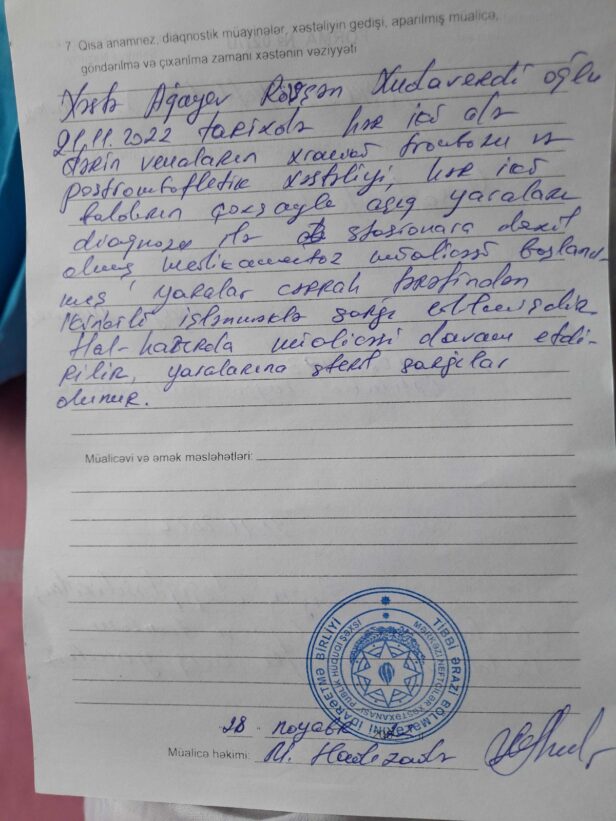 7. Qısa anamnez, diaqnostik müayinələr, xəstəliyin gedişi, aparılmış müalicə,
göndərilmə və çıxarılma zamanı xəstənin vəziyyəti
Xəstə Ağayev Rövşən Xudaverdi oğlu
21,11.2022 tarixdə hər iki alt
dərin venaların xroniki trombozu və
postromboflebitik xəstəliyi, hər iki
baldırın çoxsaylı açıq yaraları
diaqnozu ilə stasionara daxil
olmuş medikamentoz müalicəsi başlanıl-
mış, yaralar cərrah tərəfindən
işlənməklə sarğı edilmişdir.
Hal-hazırda müalicəsi davam etdi-
rilir, yaralarına steril sarğılar
olunur.
Müalicəvi və əmək məsləhətləri:
TİBBİ ƏRAZİ BÖLMƏLƏRİNİ İDARƏETMƏ BİRLİYİ
MƏRKƏZİ NEFTÇİLƏR XƏSTƏXANASI" PUBLİK HÜQUQİ ŞƏXSİ
28 noyabr
Müalicə həkimi: M.